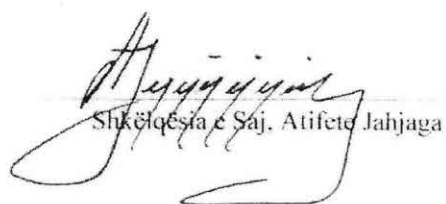 Shkëlqësia e Saj, Atifete Jahjaga